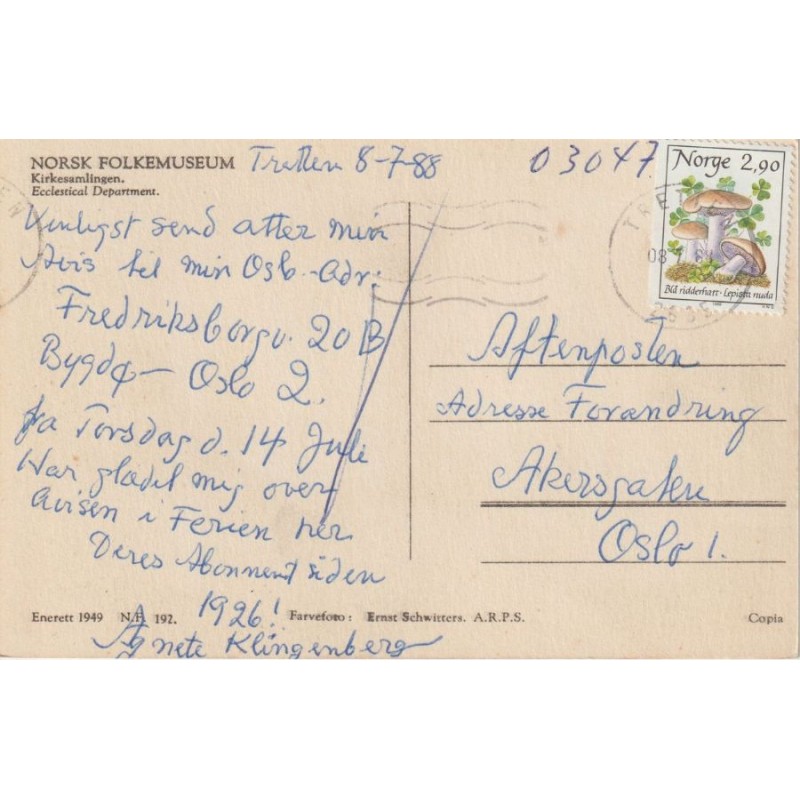 NORSK FOLKEMUSEUM
Kirkesamlingen.
Ecclestical Department.
Tretten 8-7-88
03047
Norge 2,90
Blå ridderhatt · Lepista nuda
TRET
08
Venligst send atter min
Avis til min Oslo-Adr:
Fredriksborgv. 20 B
Bygdø - Oslo 2.
fra Torsdag d. 14 Juli
Har glædet mig over
Avisen i Ferien her
Deres Abonnent siden
1926!
Agnete Klingenberg
Aftenposten
Adresse Forandring
Akersgaten
Oslo 1.
Enerett 1949 N.F. 192. Farvefoto: Ernst Schwitters. A.R.P.S. Copia